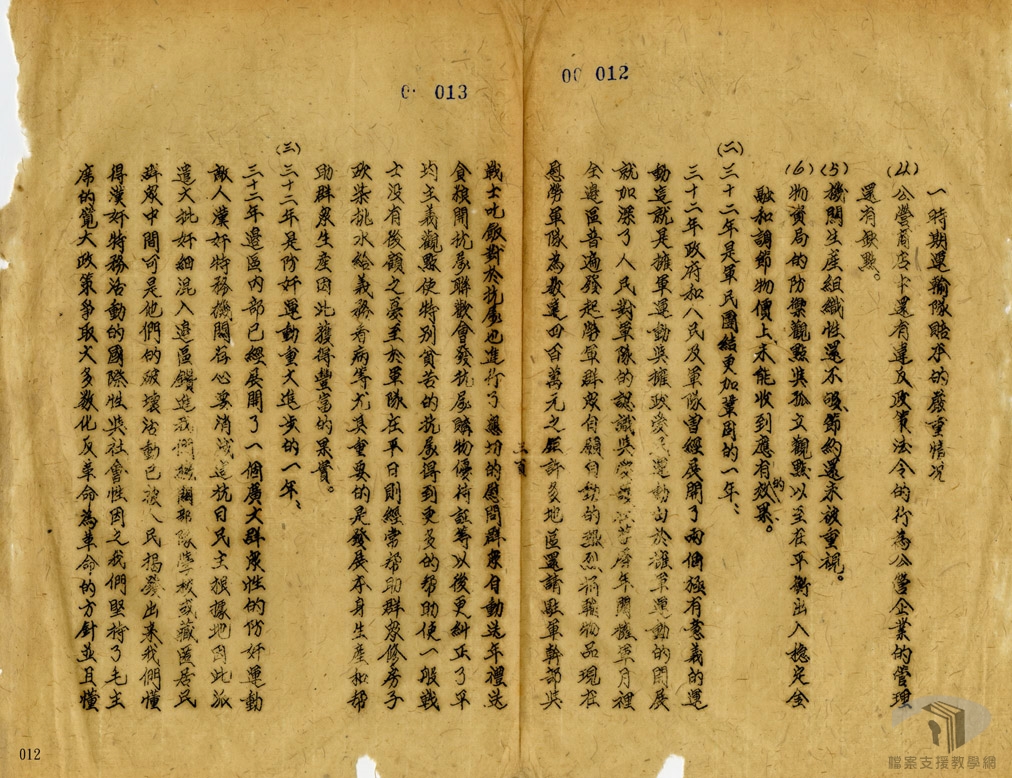 00 012
一時期運輸隊賠本的嚴重情況
(4)公營商店中還有違反政策法令的行為公營企業的管理
還有缺點。
(5)機關生產組織性還不夠節約還未被重視。
(6)物資局的防禦觀點與孤立觀點以至在平衡出入穩定金
融和調節物價上未能收到應有的效果。
(二)三十二年是軍民團結更加鞏固的一年、
三十二年政府和人民及軍隊曾經展開了兩個極有意義的運
動這就是擁軍運動與擁政愛民運動由於擁軍運動的開展
就加深了人民對軍隊的認識與愛護年關擁軍月裡
全邊區普遍發起勞軍群眾自願自動的熱烈捐輸物品現在
慰勞軍隊為數達四百萬元之鉅許多地區還請駐軍幹部與
三頁
0 013
戰士吃飯對於抗屬也進行了應切的慰問群眾自動送年禮送
食糧開抗屬聯歡會發抗屬購物優待証等以後更糾正了平
均主義觀點使特別貧苦的抗屬得到更多的幫助使一般戰
士沒有後顧之憂至於軍隊在平日則經常幫助群眾修房子
砍柴挑水給義務看病等尤其重要的是發展本身生產和幫
助群眾生產因此獲得豐富的果實。
(三)三十二年是防奸運動重大進步的一年、
三十二年邊區內部已經展開了一個廣大群眾性的防奸運動
敵人漢奸特務機關存心要消滅這抗日民主根據地因此派
遣大批奸細混入邊區鑽進我們機關部隊學校或藏匿居民
群眾中間可是他們的破壞活動已被人民揭發出來我們懂
得漢奸特務活動的國際性與社會性因之我們堅持了毛主
席的寬大政策爭取大多數化反革命為革命的方針並且懂
012
檔案支援教學網